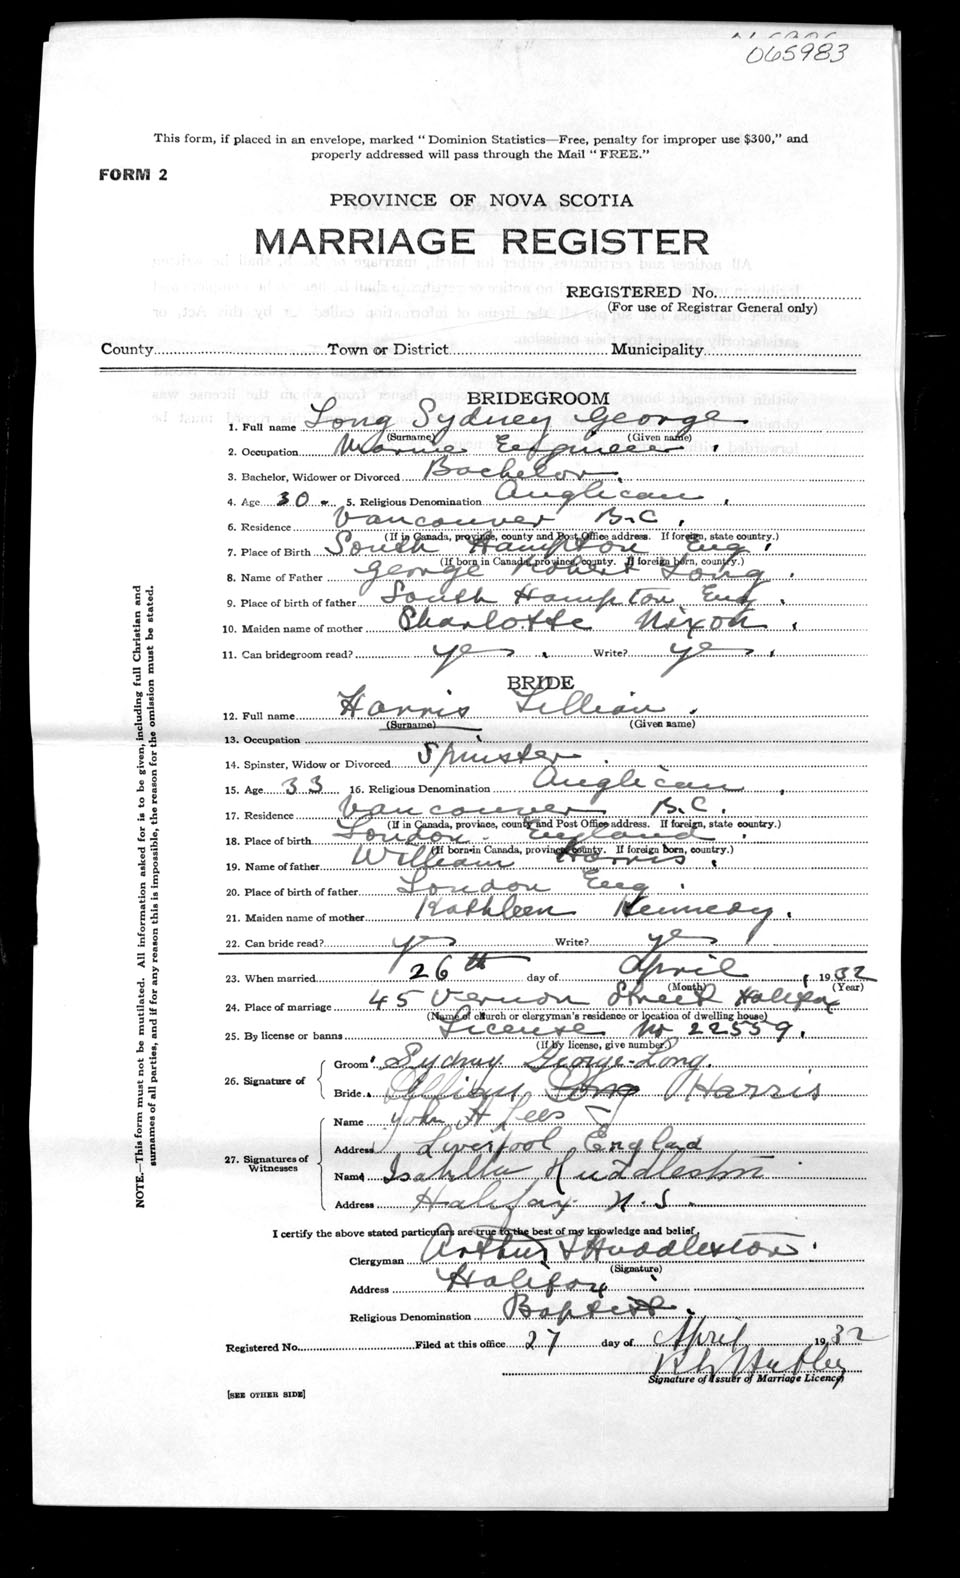 065983
This form, if placed in an envelope, marked "Dominion Statistics—Free, penalty for improper use $300," and
properly addressed will pass through the Mail "FREE."
FORM 2
PROVINCE OF NOVA SCOTIA
MARRIAGE REGISTER
REGISTERED No.
(For use of Registrar General only)
County Town or District Municipality
BRIDEGROOM
1. Full name Long Sydney George
(Surname) (Given name)
2. Occupation Marine Engineer
3. Bachelor, Widower or Divorced Bachelor.
4. Age 30 5. Religious Denomination Anglican
6. Residence Vancouver B.C.
(If in Canada, province, county and Post Office address. If foreign, state country.)
7. Place of Birth South Hampton Eng.
(If born in Canada, province, county. If foreign born, country.)
8. Name of Father George Robert Long.
9. Place of birth of father South Hampton Eng.
10. Maiden name of mother Charlotte Nixon.
11. Can bridegroom read? yes. Write? yes.
BRIDE
12. Full name Harris Lillian.
(Surname) (Given name)
13. Occupation
14. Spinster, Widow or Divorced Spinster.
15. Age 33 16. Religious Denomination Anglican
17. Residence Vancouver B.C.
(If in Canada, province, county and Post Office address. If foreign, state country.)
18. Place of birth London England.
(If born in Canada, province, county. If foreign born, country.)
19. Name of father William Harris.
20. Place of birth of father London Eng.
21. Maiden name of mother Kathleen Kennedy.
22. Can bride read? yes Write? yes
23. When married 26th day of April 1932
(Month) (Year)
24. Place of marriage 45 Vernon Street Halifax
(Name of church or clergyman's residence or location of dwelling house)
25. By license or banns License No 22559.
(If by license, give number.)
26. Signature of
Groom Sydney George Long.
Bride Lillian Long Harris
27. Signatures of Witnesses
Name John H Lees
Address Liverpool England
Name Isabella Huddleston
Address Halifax N.S.
I certify the above stated particulars are true to the best of my knowledge and belief,
Clergyman Arthur S Huddleston.
(Signature)
Address Halifax
Religious Denomination Baptist.
Registered No. Filed at this office 27 day of April 1932
Signature of Issuer of Marriage Licence
[SEE OTHER SIDE]
NOTE.—This form must not be mutilated. All information asked for is to be given, including full Christian and
surnames of all parties, and if for any reason this is impossible, the reason for the omission must be stated.